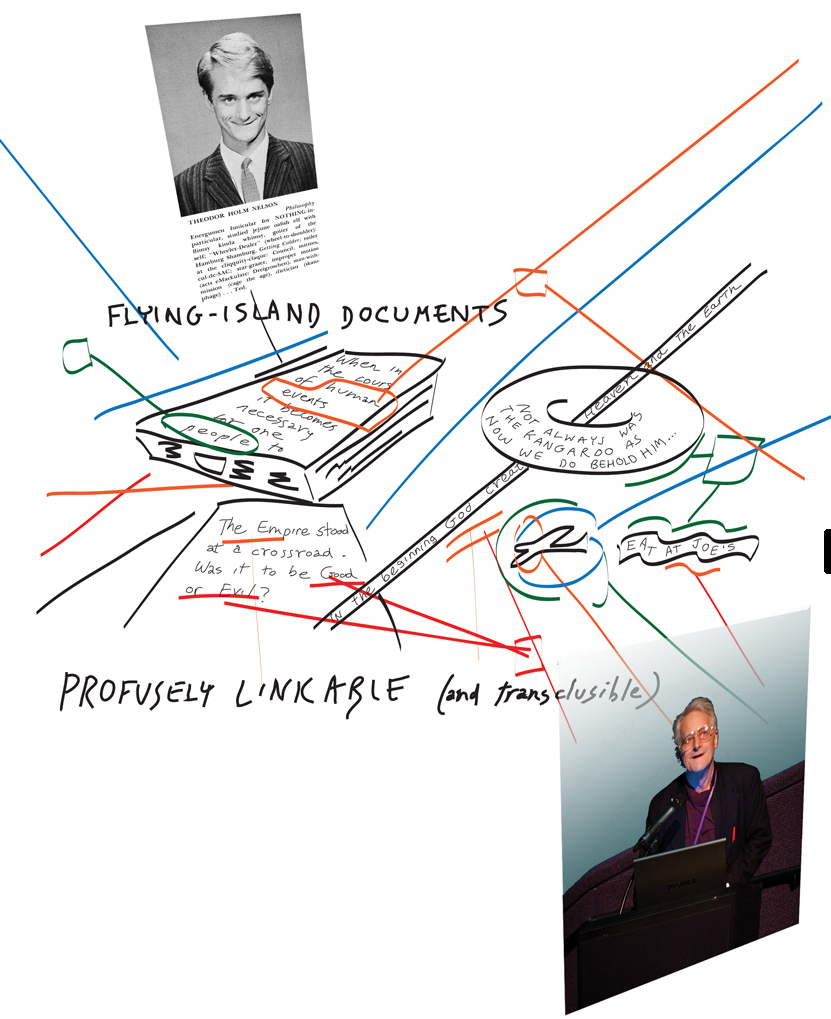 THEODOR HOLM NELSON Philosophy
Energumen funicular for NOTHING-in-
particular, studied jejune oafish elf with
flimsy kinda whimsy, gotter of the
self; "Wheeler-Dealer" (wheel-to-shoulder);
Hamburg Shamburg, Getting Colder; railer
at the cliquity-claque: Council, mitures,
cul-de-SAC; star-grazer, improper motion
(acts eMackulate: Dreigroschen), man-with-
mission (cage the age), dietician (skato-
phage) . . . Ted.
FLYING-ISLAND DOCUMENTS
When in
the cours
of human
events
it becomes
necessary
for one
people to
Heaven and the Earth
NOT ALWAYS WAS
THE KANGAROO AS
NOW WE DO BEHOLD HIM...
In the beginning God creat
The Empire stood
at a crossroad.
Was it to be Good
or Evil?
EAT AT JOE'S
PROFUSELY LINKABLE (and transclusible)
TOSHIBA